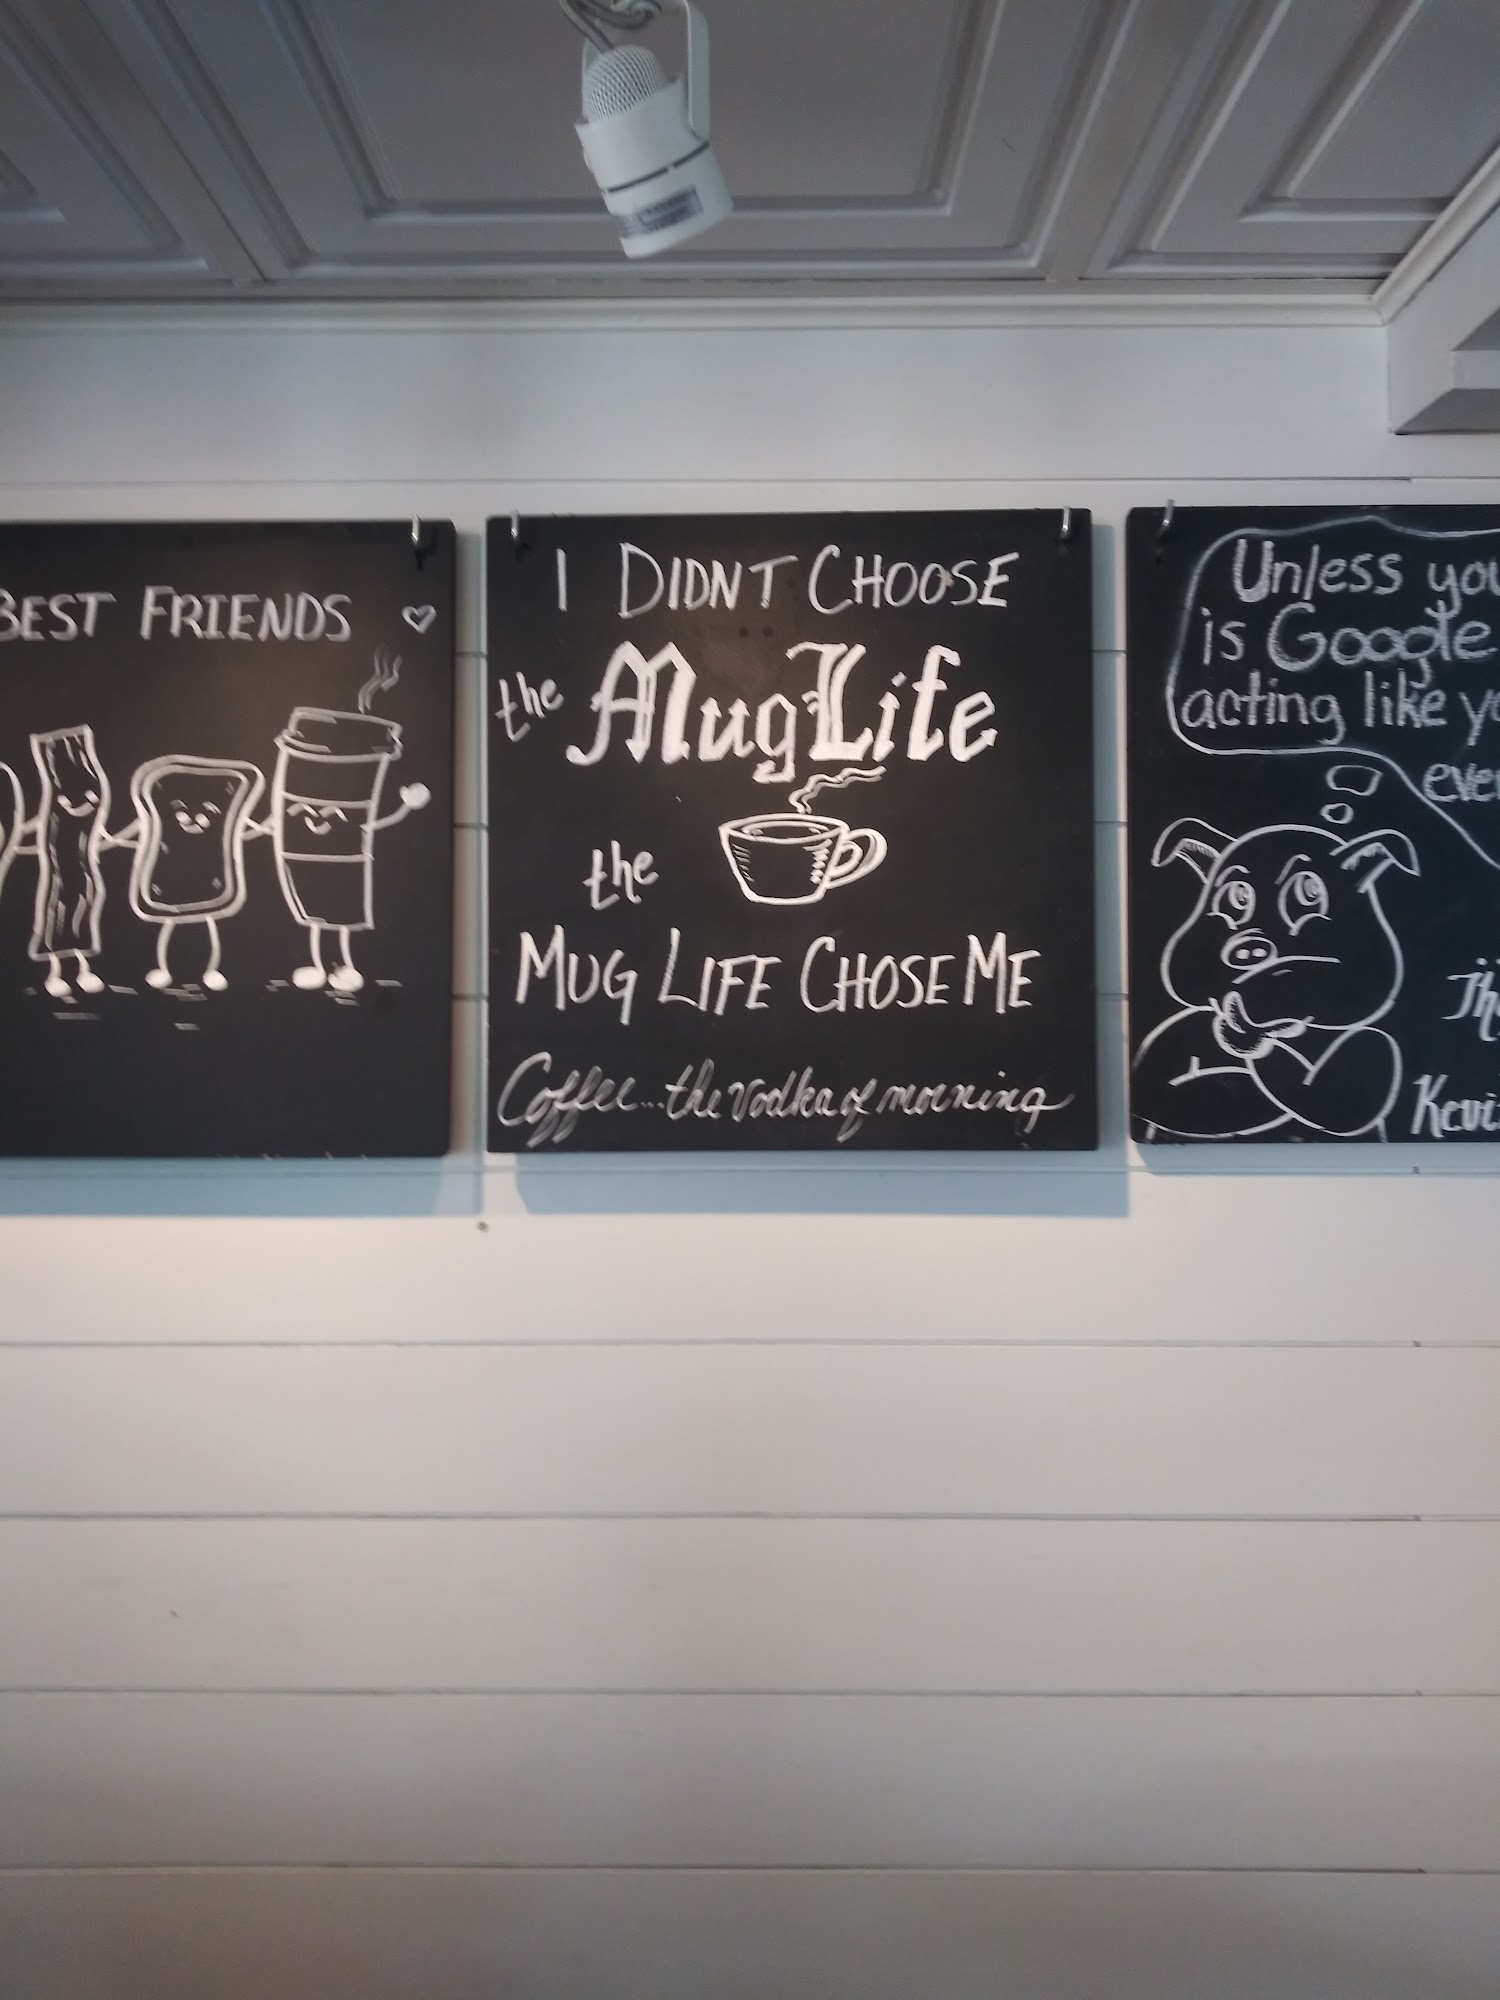 BEST FRIENDS
I DIDNT CHOOSE
the Mug Life
the
MUG LIFE CHOSE ME
Coffee...the vodka of morning
Unless you
is Google
acting like